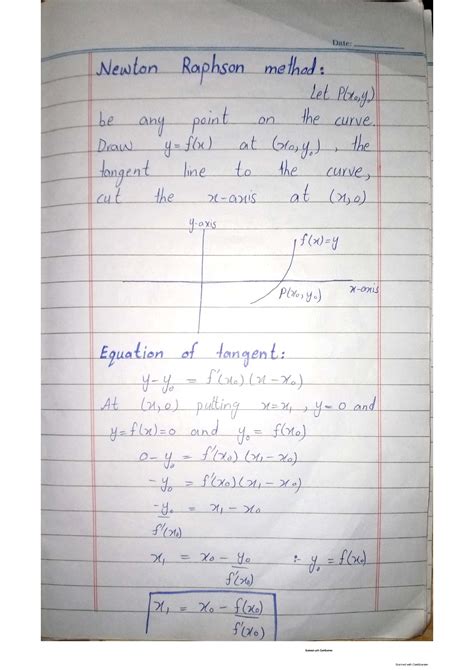 Date:
Newton Raphson method:
Let P(x₀,y₀)
be any point on the curve.
Draw y=f(x) at (x₀,y₀), the
tangent line to the curve,
cut the x-axis at (x,0)
y-axis
f(x)=y
x-axis
P(x₀,y₀)
Equation of tangent:
y-y₀ = f'(x₀)(x-x₀)
At (x,0) putting x=x₁, y=0 and
y=f(x)=0 and y₀=f(x₀)
0-y₀ = f'(x₀)(x₁-x₀)
-y₀ = f'(x₀)(x₁-x₀)
-y₀/f'(x₀) = x₁-x₀
x₁ = x₀ - y₀/f'(x₀) :- y₀=f(x₀)
x₁ = x₀ - f(x₀)/f'(x₀)
Scanned with CamScanner
Scanned with CamScanner